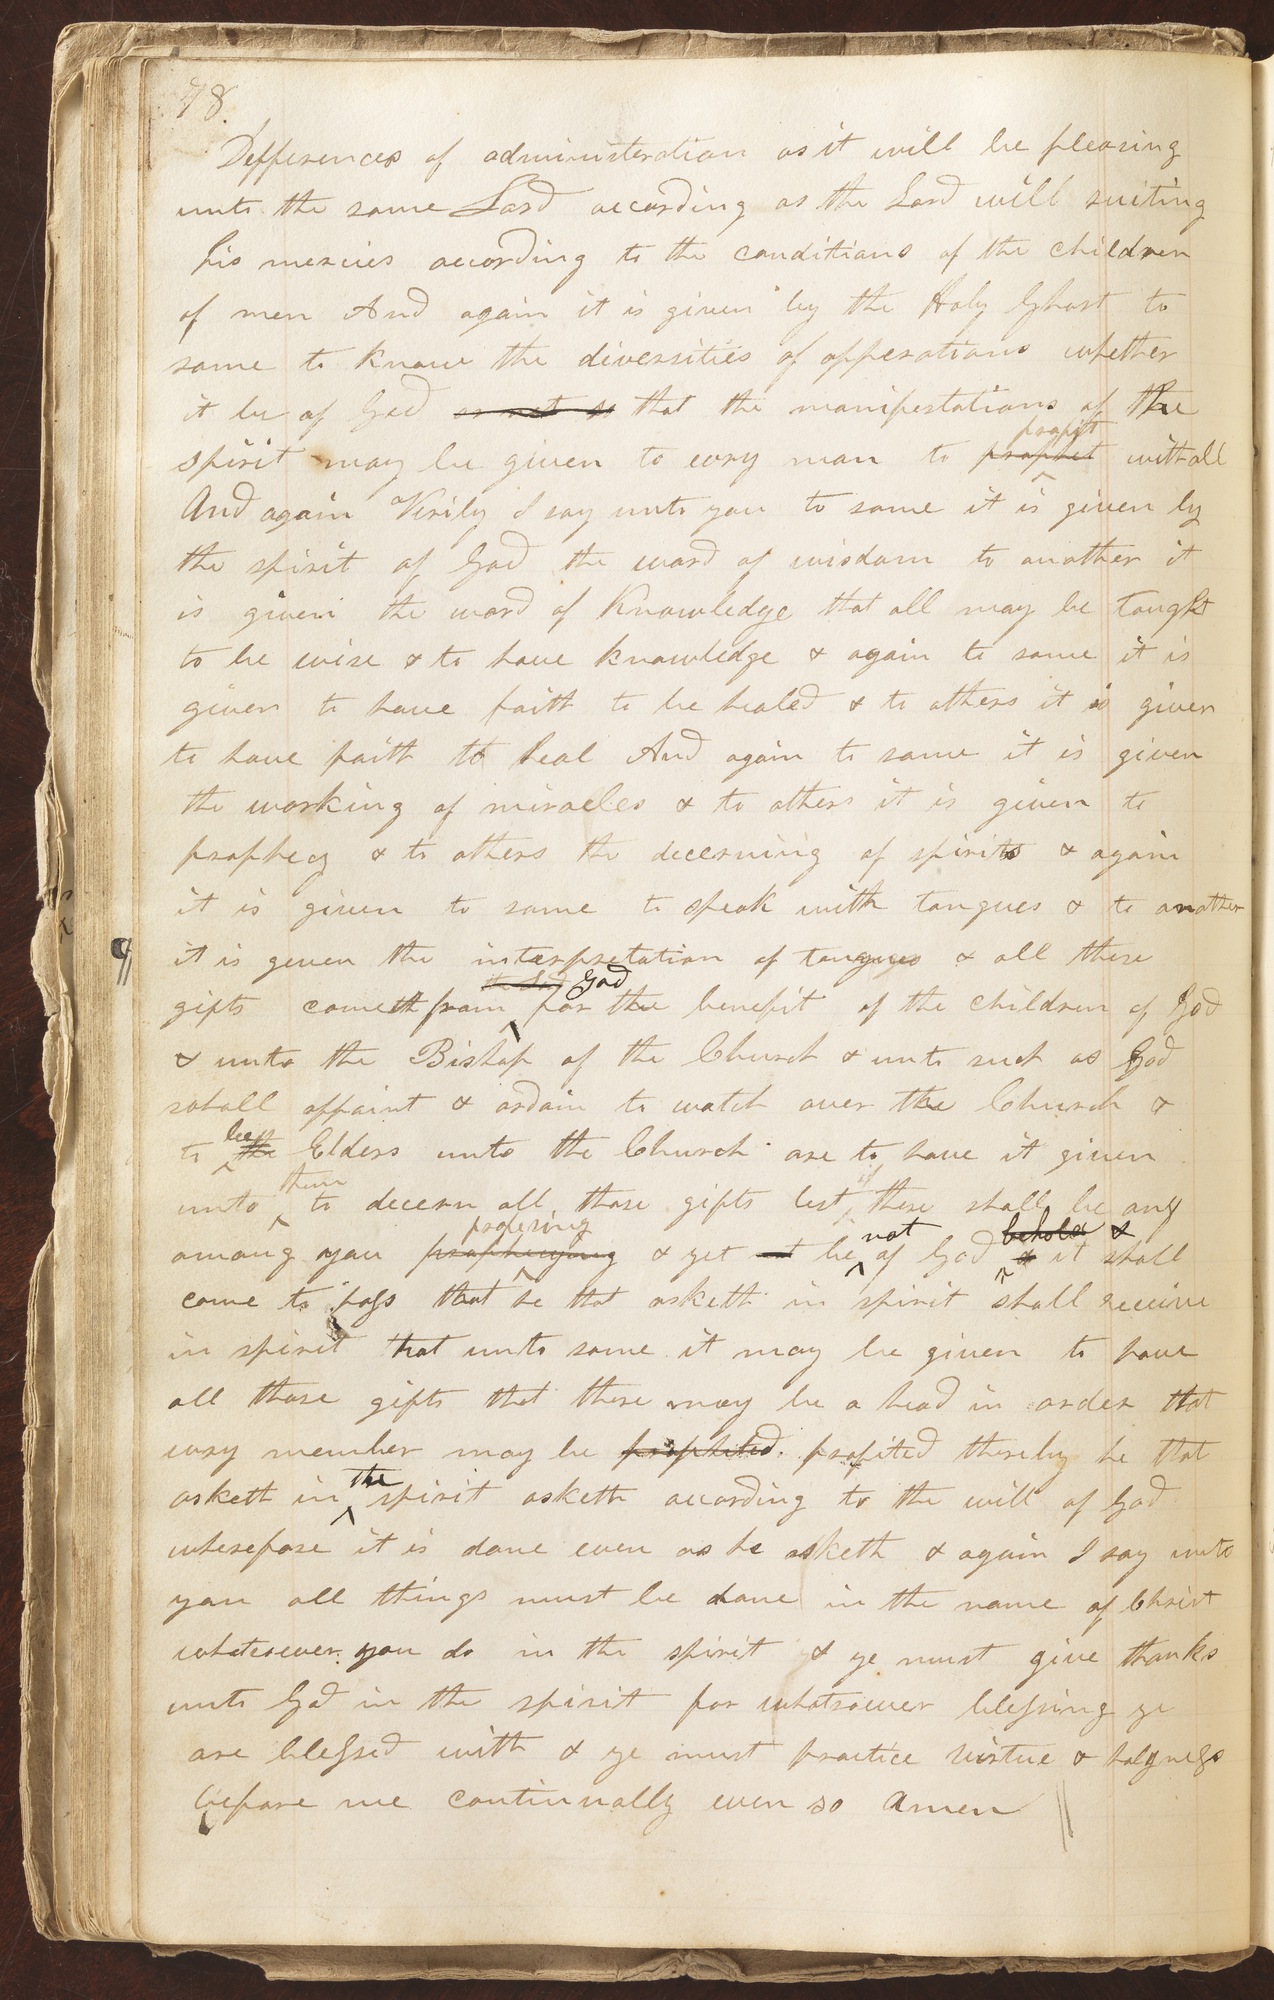 78.
Defferences of administeration as it will be pleasing
unto the same Lord according as the Lord will suiting
his mercies according to the conditions of the children
of men And again it is given by the Holy Ghost to
some to know the diversities of opperations whether
it be of God or not so that the manifestations of the
profit
spirit may be given to evry man to prophet withall
And again Verily I say unto you to some it is given by
the spirit of God the word of wisdom to another it
is given the word of Knowledge that all may be taught
to be wise & to have knowledge & again to some it is
given to have faith to be healed & to others it is given
to have faith to heal And again to some it is given
the working of miracles & to others it is given to
prophecy & to others the decerning of spirits & again
it is given to some to speak with tongues & to another
¶ it is geven the interpretation of tongues & all these
the Lord God
gifts cometh from ^ for the benefit of the children of God
& unto the Bishop of the Church & unto such as God
shall appoint & ordain to watch over the Church &
be
to ^ the Elders unto the Church are to have it given
them if
unto ^ to decern all those gifts lest ^ there shall be any
profesing not behold &
among you prophecying ^ & yet be ^ of God ^ & it shall
come to pass that he that asketh in spirit shall receive
in spirit that unto some it may be given to have
all those gifts that there may be a head in order that
evry member may be prophited profited thereby he that
the
asketh in ^ spirit asketh according to the will of God
wherefore it is done even as he asketh & again I say unto
you all things must be done in the name of Christ
whatsoever you do in the spirit & ye must give thanks
unto God in the spirit for whatsoever blessing ye
are blessed with & ye must practice virtue & holyness
before me continually even so amen